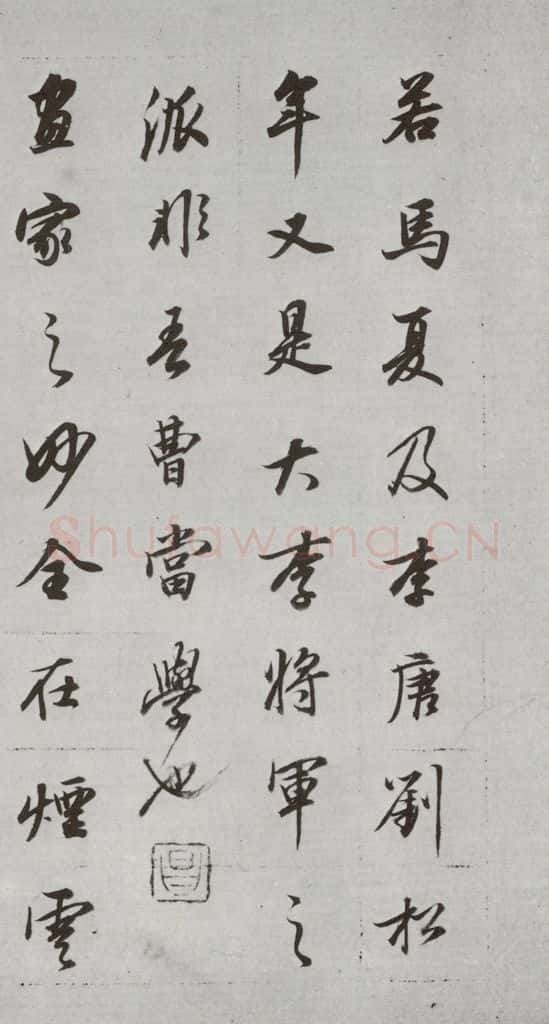 若馬夏及李唐劉松
年又是大李將軍之
派非吾曹當學也
畫家之妙全在煙雲
Shufawang.CN